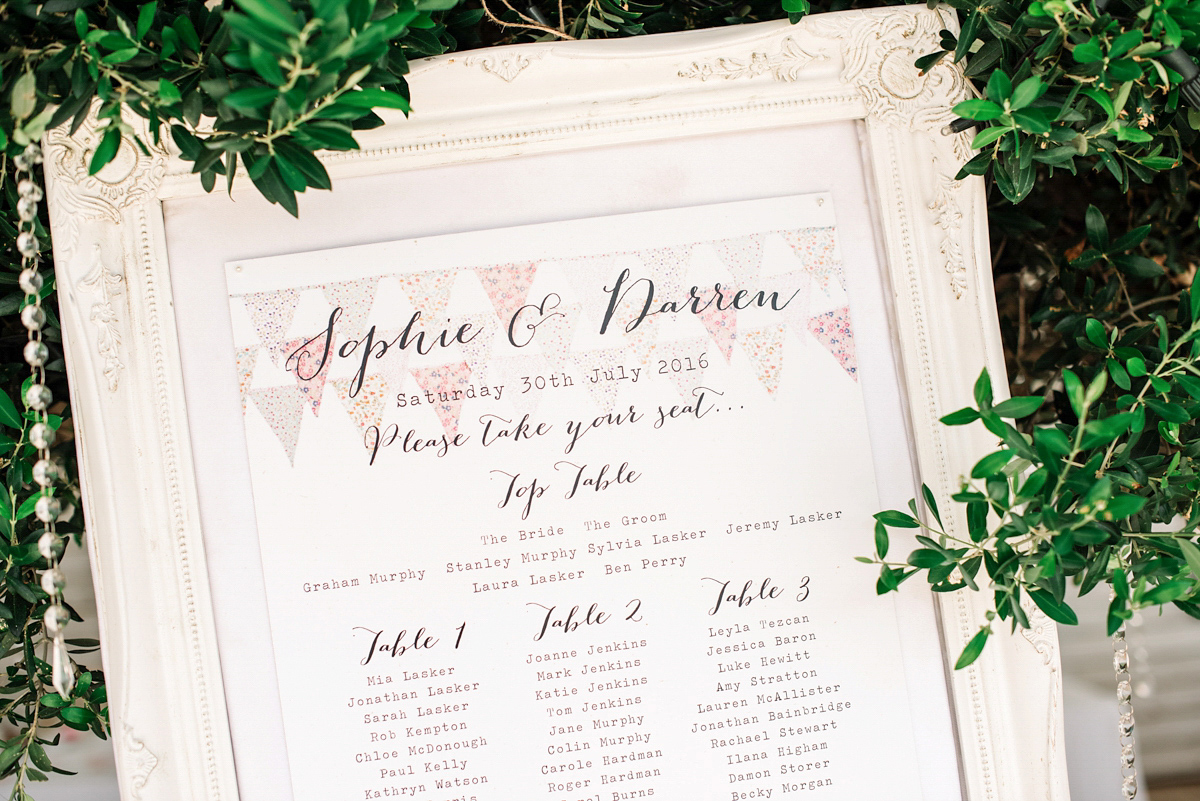 Sophie & Darren
Saturday 30th July 2016
Please take your seat...
Top Table
The Bride The Groom
Graham Murphy Stanley Murphy Sylvia Lasker Jeremy Lasker
Laura Lasker Ben Perry
Table 1
Mia Lasker
Jonathan Lasker
Sarah Lasker
Rob Kempton
Chloe McDonough
Paul Kelly
Kathryn Watson
Table 2
Joanne Jenkins
Mark Jenkins
Katie Jenkins
Tom Jenkins
Jane Murphy
Colin Murphy
Carole Hardman
Roger Hardman
Burns
Table 3
Leyla Tezcan
Jessica Baron
Luke Hewitt
Amy Stratton
Lauren McAllister
Jonathan Bainbridge
Rachael Stewart
Ilana Higham
Damon Storer
Becky Morgan